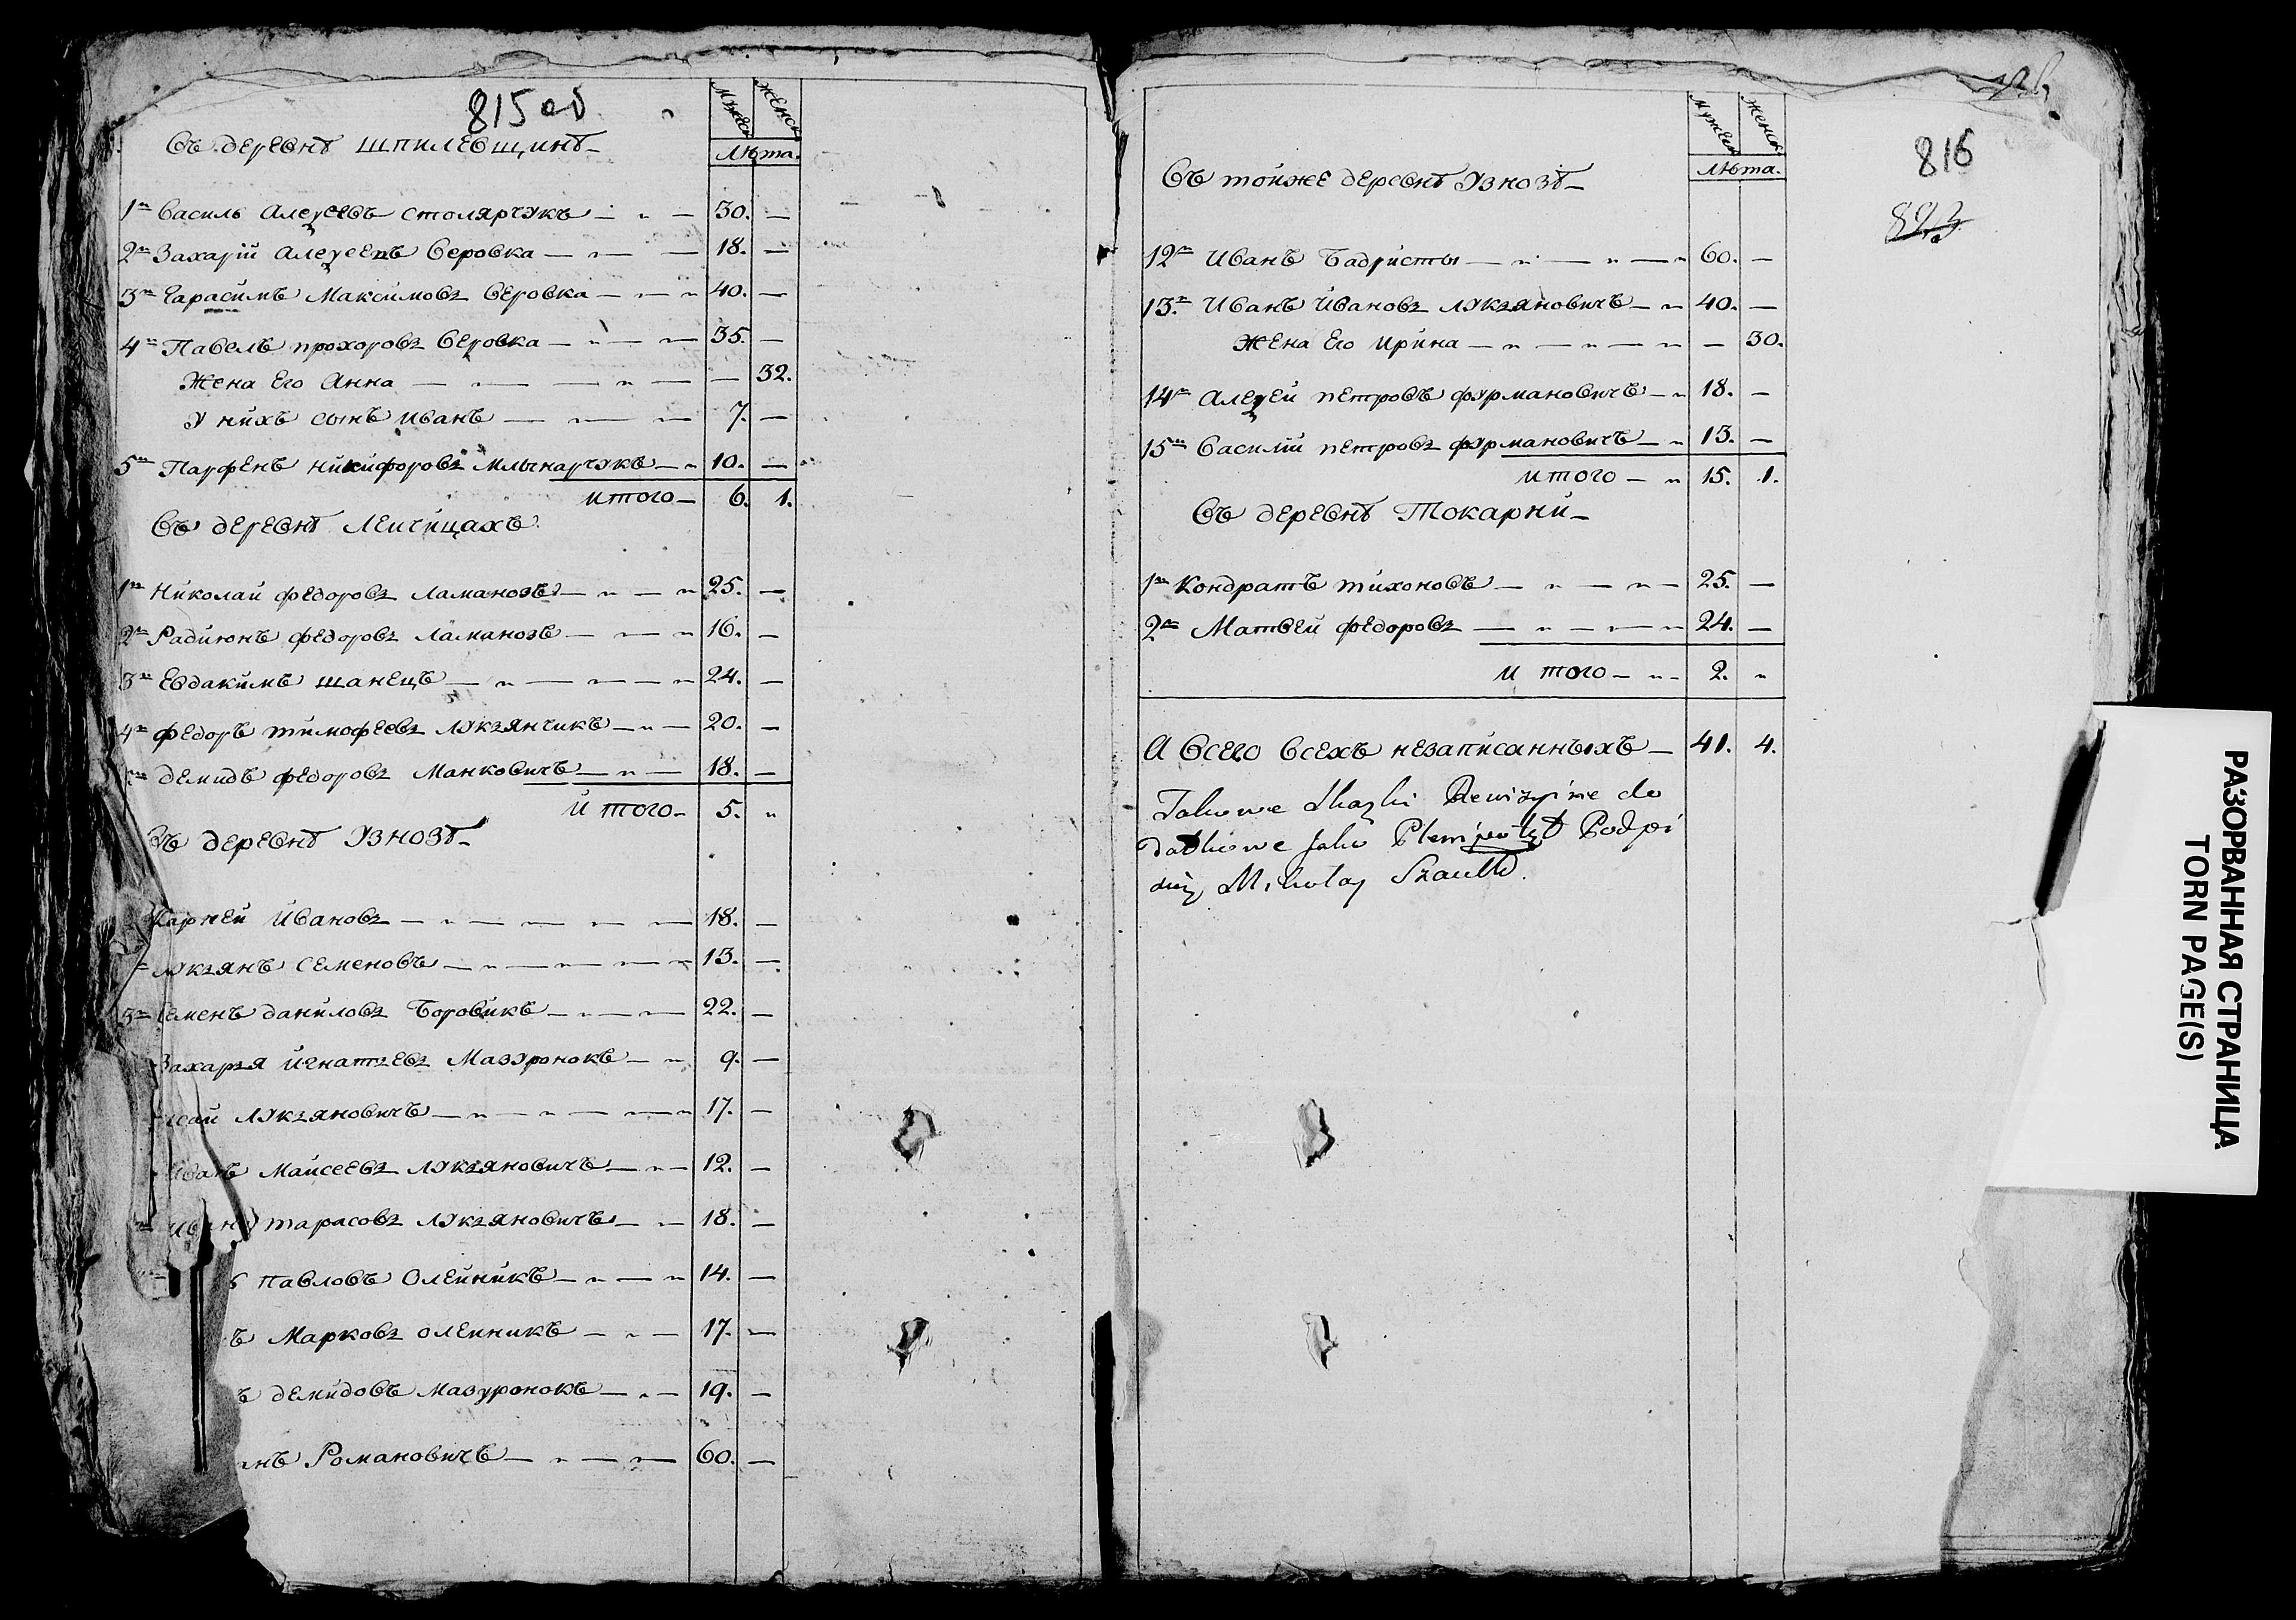 815 об
Мужеск Женск
Лѣта.
Въ деревнѣ шпилевщинѣ
1й Василь Алеѯеевъ столярчукъ 30. —
2й Захарій Алеѯеевъ Веровка 18. —
3й Гарасимъ Максимовъ Веровка 40. —
4й Павелъ прохоровъ Веровка 35. —
Жена Его Анна — 32.
У нихъ сынъ иванъ 7. —
5й Парфенъ никифоровъ млынарчукъ 10. —
итого 6. 1.
Въ деревнѣ Леичицахъ
1й Николаи федоровъ Ламанозъ 25. —
2й Радиюнъ федоровъ Ламанозъ 16. —
3й Евдакимъ шанецъ 24. —
4й федоръ тимофеевъ лукъянчикъ 20. —
демидъ федоровъ Манковичъ 18. —
Итого 5. „
Въ деревнѣ Узнозѣ
Карней Ивановъ 18. —
лукъянъ семеновъ 13. —
3й семенъ даниловъ Боровикъ 22. —
Захаръя игнатъевъ Мазуронокъ 9. —
лукъяновичъ 17. —
Иванъ Маисеевъ лукъяновичъ 12. —
Иванъ тарасовъ лукъяновичъ 18. —
павловъ Олейникъ 14. —
ъ Марковъ олеиникъ 17. —
ъ демидовъ мазуронокъ 19. —
нъ Романовичъ 60. —
816
823
Мужеск Женск
Лѣта.
Въ тойже деревнѣ Узнозѣ
12й Иванъ Бадристы 60. —
13й Иванъ Ивановъ лукъяновичъ 40. —
Жена Его Ирина — 30.
14й Алеѯей петровъ фурмановичъ 18. —
15й Василій петровъ фурмановичъ 13. —
итого 15. 1.
Въ деревнѣ Токарни
1й Кондратъ тихоновъ 25. —
2й Матвей федоровъ 24. —
и того 2. „
А всего всехъ незаписанныхъ 41. 4.
Takowe Skazki Rewizyine do
datkowe jako Plenipotent Podpi
suię Mikołay
РАЗОРВАННАЯ СТРАНИЦА
TORN PAGE(S)